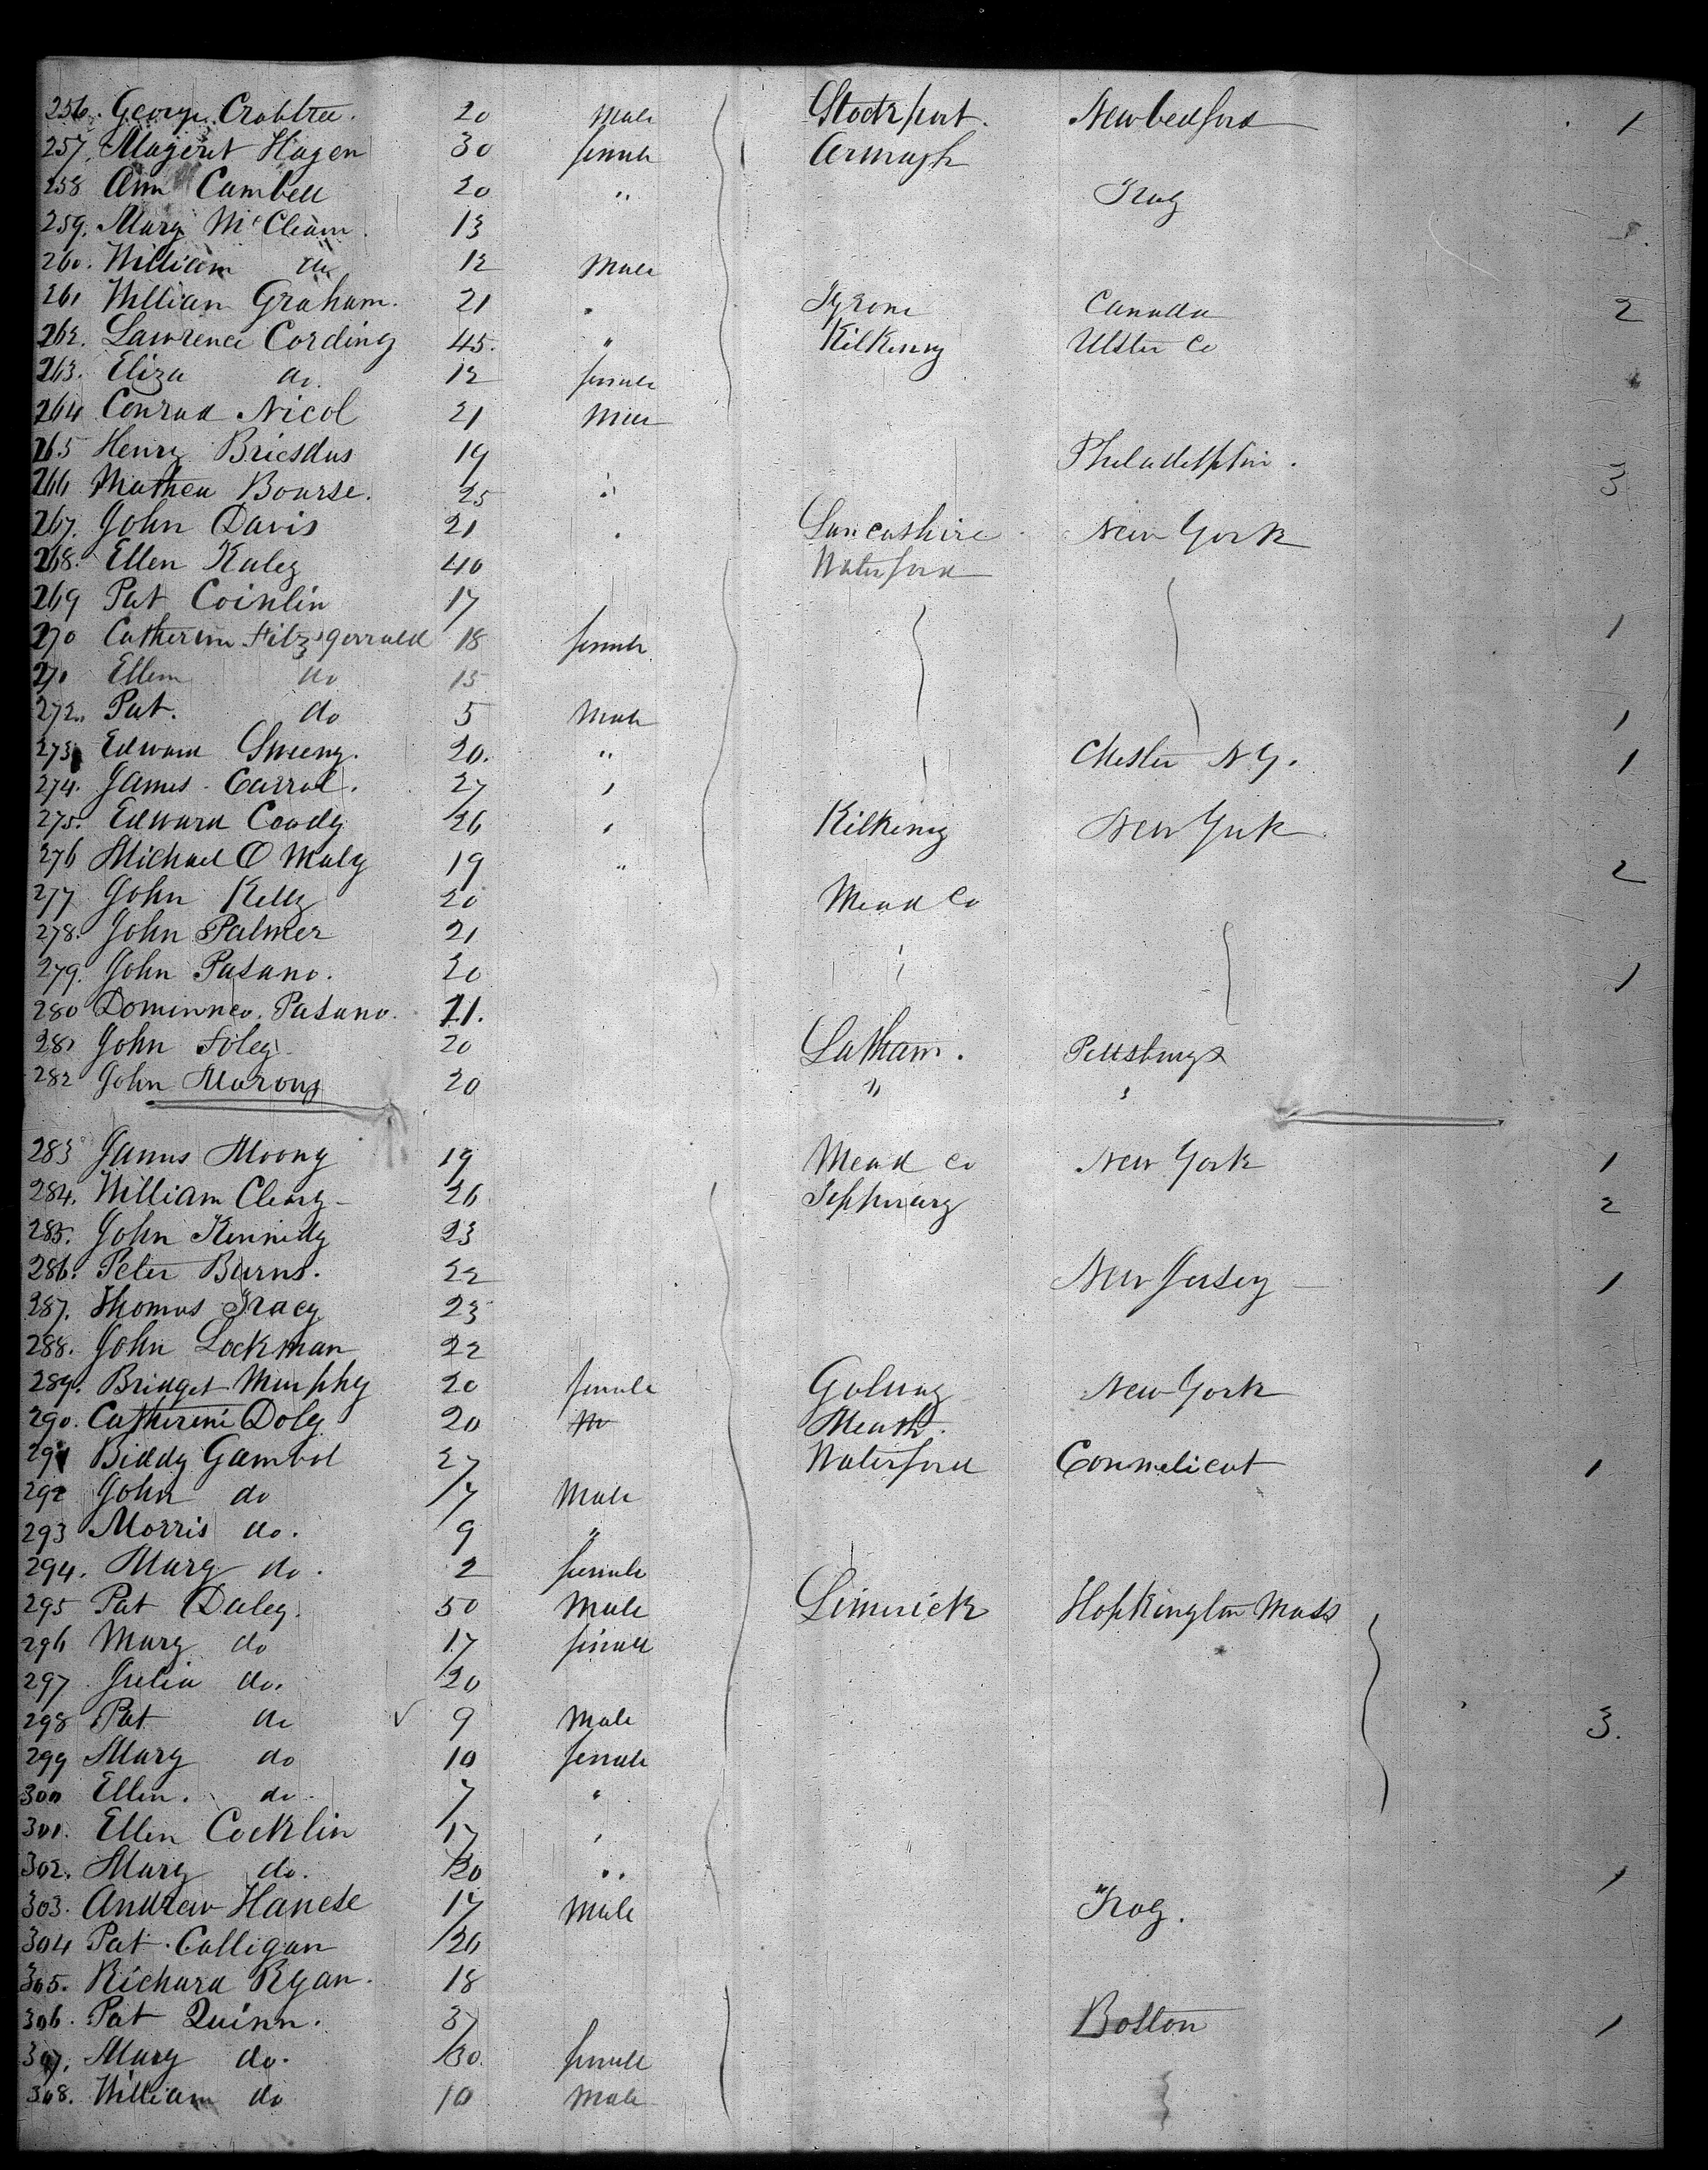 256. George Crabtree. 20 Male Stockport. Newbedford 1
257. Magiret Hagen 30 female Armagh
258 Ann Cambell 20 " Troy
259. Mary McCleam. 13
260. William do 12 Male
261 William Graham. 21 " Tyrone Canada 2
262. Lawrence Cording 45. " Kilkenny Ulster Co
263. Eliza do. 12 female
264 Conrad Nicol 21 Male
265 Henry Briesdus 19 Philadelphia. 3
266 Mathew Bourse. 25 "
267. John Davis 21 " Lancashire New York
268. Ellen Kaley 40 Waterford
269 Pat Coinlin 17
270 Catherine Fitzgerrald 18 female 1
271 Ellen do 15
272. Pat. do 5 Male 1
273 Edward Sweeny. 20. " Chester N Y. 1
274. James Carrol. 27 "
275. Edward Coady 26 " Kilkenny New York
276 Michael O Maly 19 " 2
277 John Kelly 20 Mead Co
278. John Palmer 21
279. John Pasano. 20 1
280 Dominneo. Pasano. 21.
281 John Foley 20 Latham. Pittsburgh
282 John Marony 20 " "
283 James Moony 19 Mead Co New York 1
284. William Cleary 26 Tipperary 2
285. John Kennedy 23
286. Peter Burns. 22 New Jersey 1
287. Thomas Tracy 23
288. John Lockman 22
289. Bridget Murphy 20 female Galway New York
290. Catherine Doly 20 Meath.
291 Biddy Gambol 27 Waterford Connelicut 1
292 John do 17 Male
293 Morris do. 9 "
294. Mary do. 2 female
295 Pat Daley. 50 Male Limerick Hopkington Mass
296 Mary do 17 female
297 Julia do. 20
298 Pat do 9 Male 3.
299 Mary do 10 female
300 Ellen. do. 7 "
301. Ellen Cocklin 17 "
302. Mary do. 20 " 1
303. Andrew Hanese 17 Male Troy.
304 Pat. Calligan 20
305. Richard Ryan. 18
306. Pat Quinn. 37 Boston 1
307. Mary do. 30. female
308. William do 10 Male